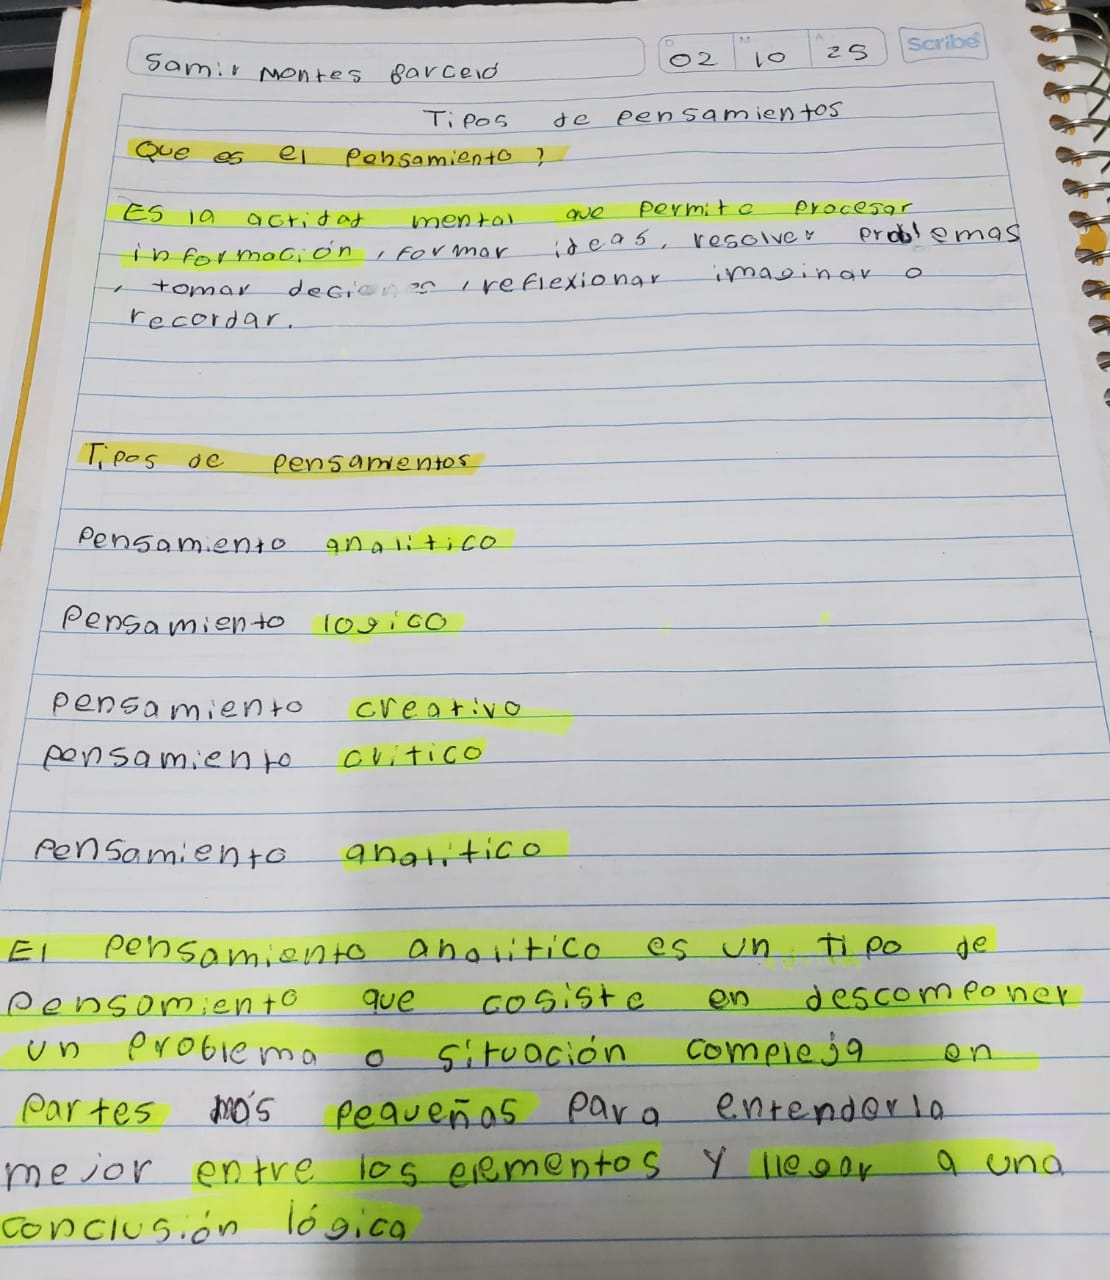 Samir Montes Barcelo
D 02 M 10 A 25 Scribe
Tipos de pensamientos
Que es el Pensamiento?
Es la actidad mental que permite procesar
información, formar ideas, resolver problemas
, tomar deciones, reflexionar imaginar o
recordar.
Tipos de pensamentos
Pensamiento analitico
Pensamiento logico
pensamiento creativo
pensamiento critico
Pensamiento analitico
El Pensamiento analitico es un tipo de
Pensamiento que cosiste en descomponer
un Problema o situación compleja en
Partes más pequeñas Para entenderla
mejor entre los elementos y llegar a una
conclusión lógica